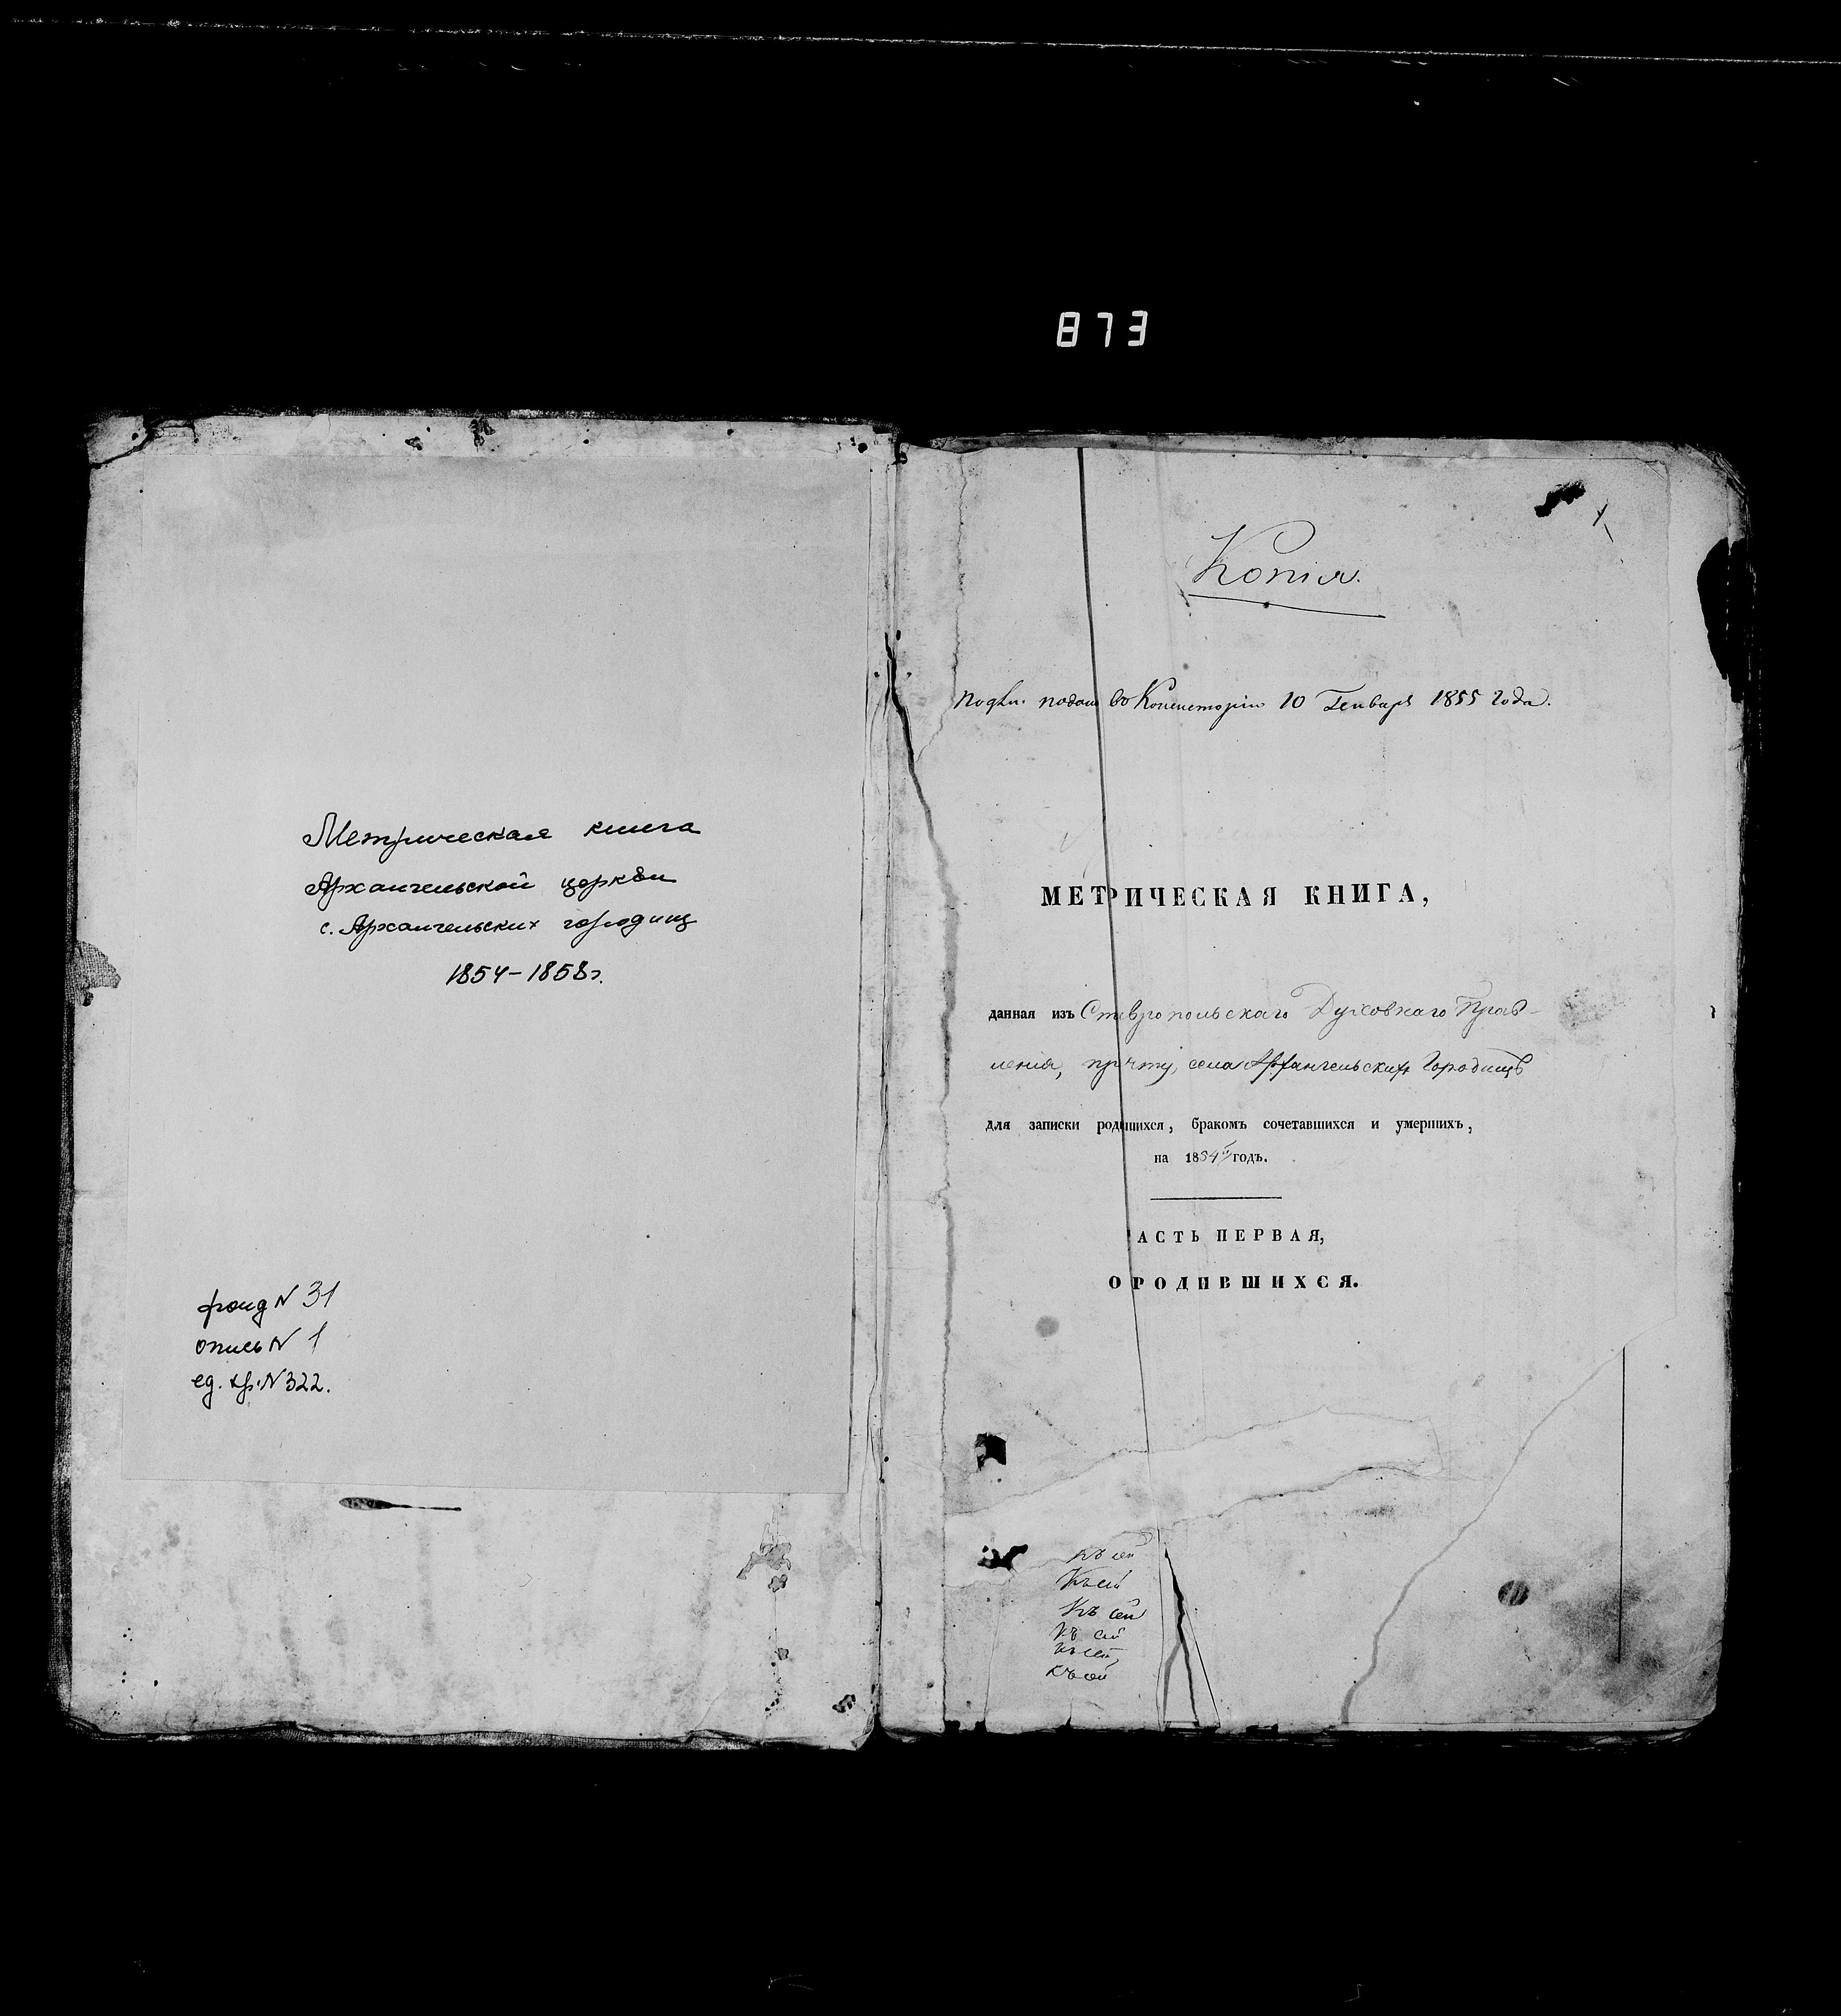 873
Метрическая книга
Архангельской церкви
с. Архангельских городищ
1854-1858г.
фонд N 31
опись N 1
ед. хр. N 322.
1
Копія.
Подлин. подана въ Консисторію 10 Генваря 1855 года.
МЕТРИЧЕСКАЯ КНИГА,
данная изъ Ставропольскаго Духовнаго Прав-
ленія, причту, села Архангельскихъ Городищъ
для записки родшихся, бракомъ сочетавшихся и умершихъ,
на 1854й годъ.
АСТЬ ПЕРВАЯ,
О РОДИВШИХСЯ.
Къ сей
Къ сей
Къ сей
Къ сей
Къ сей
Къ сей